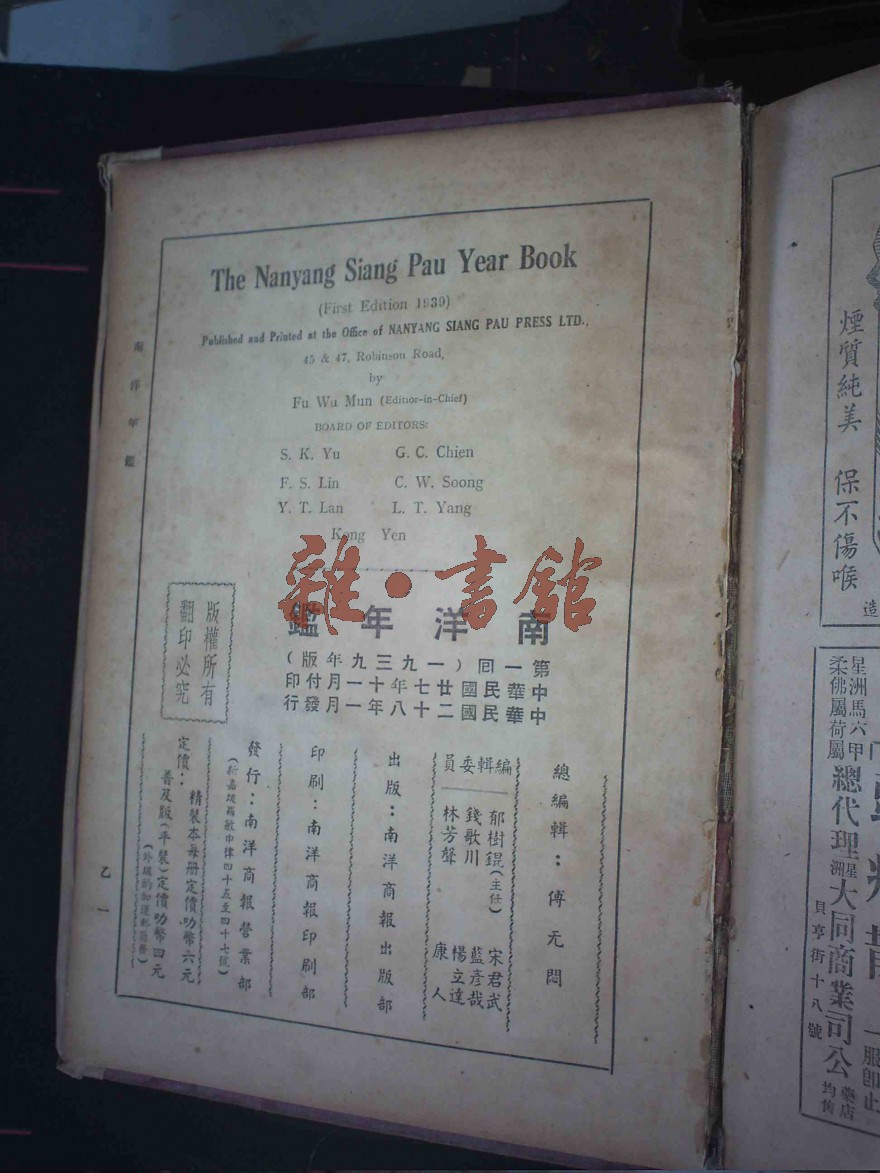 The Nanyang Siang Pau Year Book
(First Edition 1939)
Published and Printed at the Office of NANYANG SIANG PAU PRESS LTD.,
45 & 47, Robinson Road,
by
Fu Wu Mun (Editior-in-Chief)
BOARD OF EDITORS:
S. K. Yu G. C. Chien
F. S. Lin C. W. Soong
Y. T. Lan L. T. Yang
Kong Yen
雜·書館
南洋年鑑
第一回(一九三九年版)
中華民國廿七年十一月付印
中華民國二十八年一月發行
版權所有
翻印必究
總編輯:傅无悶
編輯委員
郁樹錕(主任) 宋君武
錢歌川 藍彥哉
林芳聲 楊立達
康人
出版:南洋商報出版部
印刷:南洋商報印刷部
發行:南洋商報營業部
(新嘉坡羅敏申律四十五至四十七號)
定價:
精裝本每册定價叻幣六元
普及版(平裝)定價叻幣四元
南洋年鑑
乙一
煙質純美 保不傷喉
造
星洲馬六甲
柔佛屬荷屬
總代理
星洲
大同商業公司
貝亨街十八號
服即止
藥店
均售